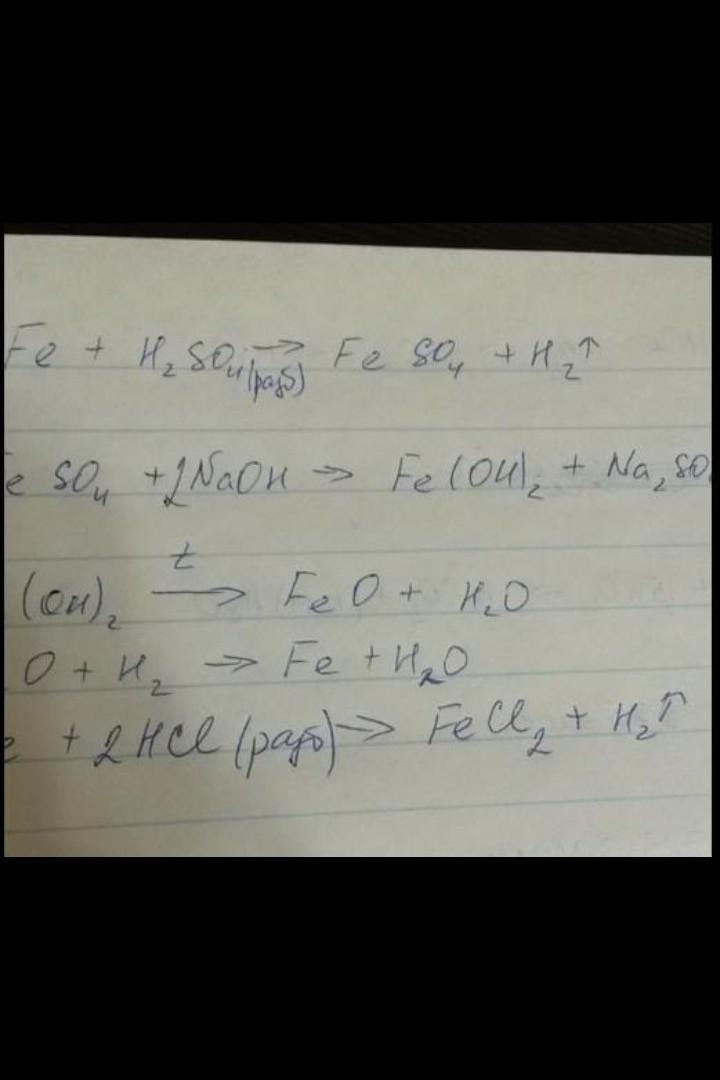 Fe + H₂SO₄(разб) → FeSO₄ + H₂↑
e SO₄ + 2NaOH → Fe(OH)₂ + Na₂SO
(OH)₂ t→ FeO + H₂O
O + H₂ → Fe + H₂O
e + 2HCl (разб) → FeCl₂ + H₂↑